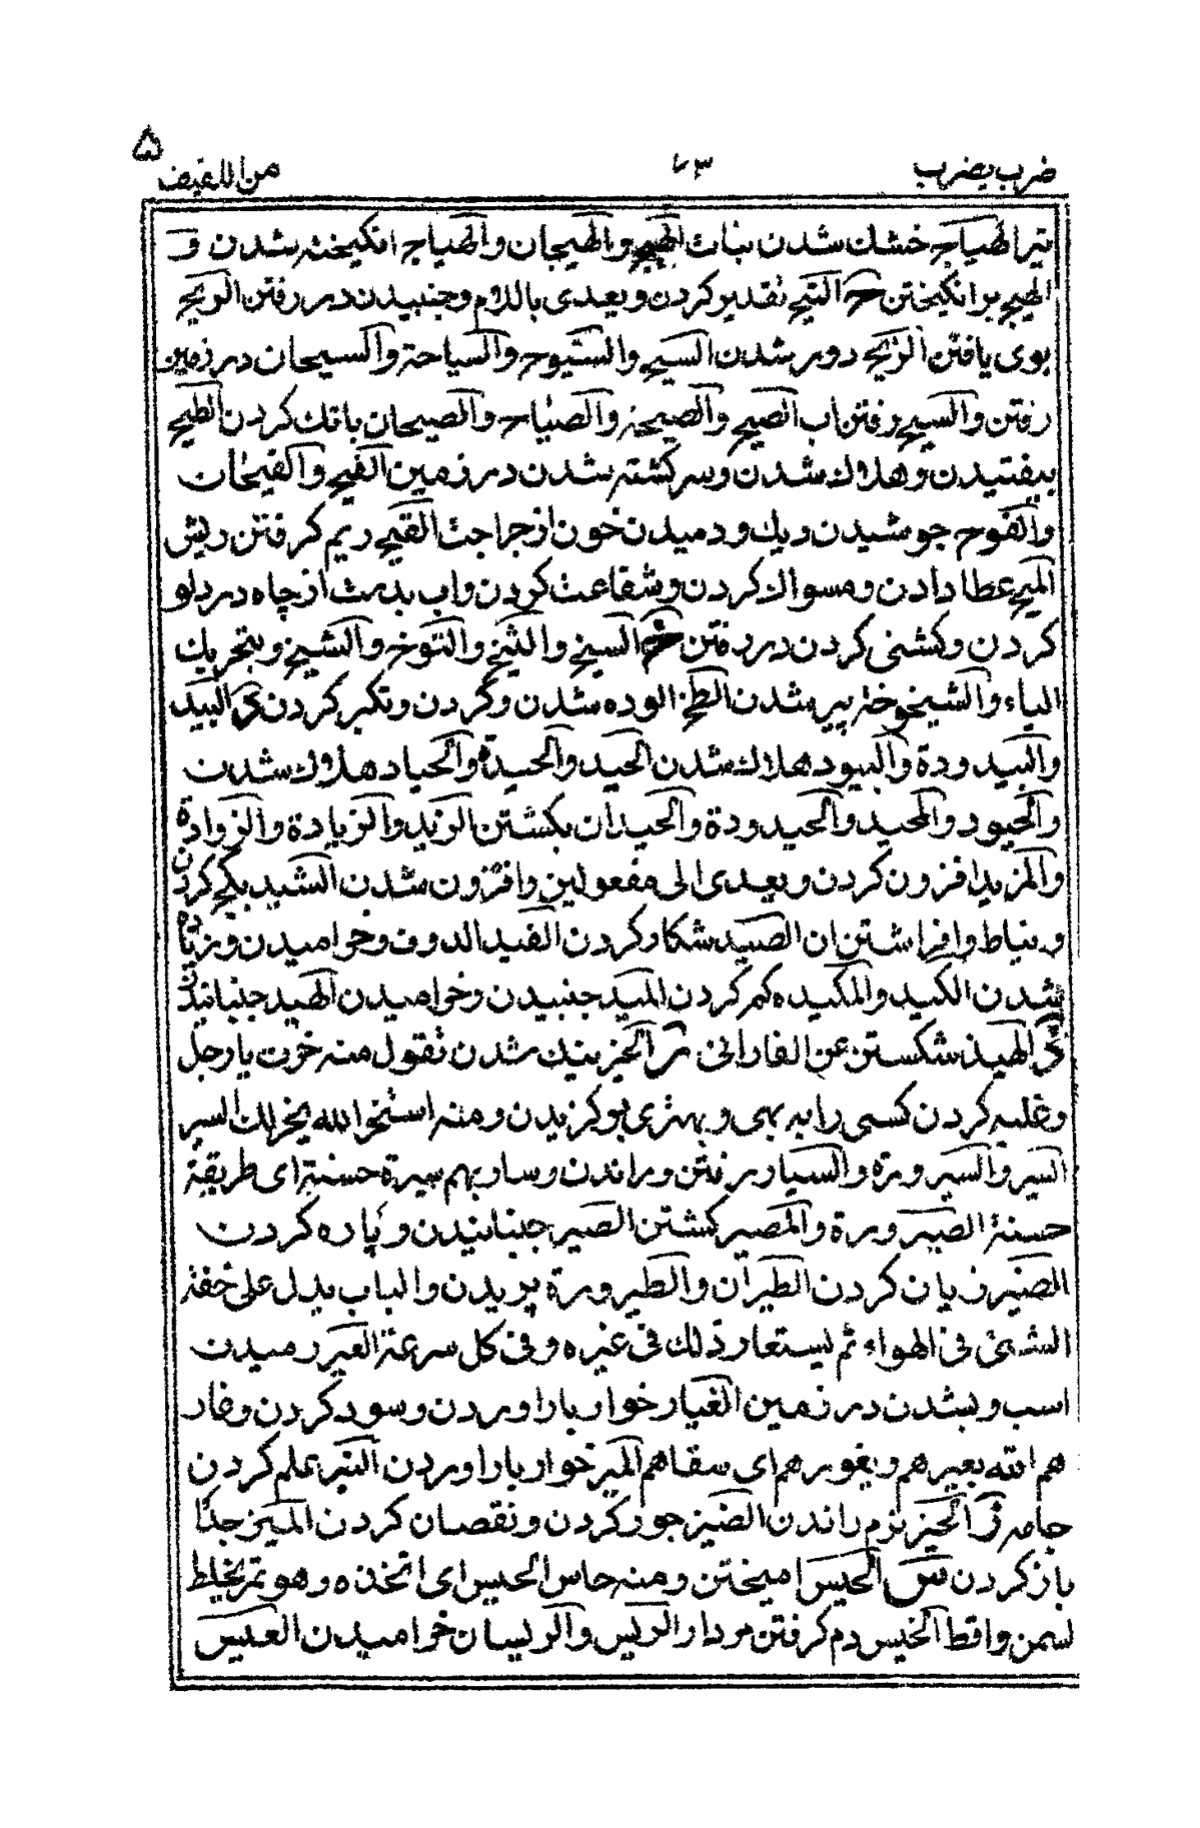 ضرب يضرب ٧٣ من اللفيف ۵
تير الهياج خشك شدن نبات الهيج والهيجان والهياج انكيخته شدن و
الهيج برانكيختن ح التيح تقدير كردن ويعدى باللام وجنبيدن در رفتن الريح
بوى يافتن الزيح دور شدن السيح والسيوح والسياحة والسيحان در زمين
رفتن والسيح رفتن اب الصيح والصيحة والصياح والصيحان بانك كردن الطيح
بيفتيدن وهلاك شدن وسركشته شدن در زمين الفيح والفيحان
والفوح جوشيدن ديك ودميدن خون از جراحت القيح ريم كرفتن ريش
الميح عطا دادن ومسواك كردن وشفاعت كردن واب بدست از چاه در دلو
كردن وكشنى كردن در رفتن خ السيخ والثيخ والتوخ والشيخ وبتحريك
الياء والشيخوخة پير شدن الطيخ الوده شدن وكردن وتكبر كردن د البيد
والبيدودة والبيود هلاك شدن الحيد والحيدة والحياد هلاك شدن
والحيود والمحيد والحيدودة والحيدان بكشتن الزيد والزيادة والزوادة
والمزيد افزون كردن ويعدى الى مفعولين وافزون شدن الشيد بكچ كردن
وبناط وافراشتن ان الصيد شكار كردن الفيد الدوف وخراميدن وزياده
شدن الكيد والمكيده كم كردن الميد جنبيدن وخراميدن الهيد جنبانيدن
ذ الهيذ شكستن عن الفارابى ر الخير نيك شدن تقول منه خرت يا رجل
وغلبه كردن كسى را به بهى وبهترى بو كزيدن ومنه استخر الله يخر لك السير
السير والسيرورة والسيار رفتن وراندن وسار بهم سيرة حسنة اى طريقة
حسنة الصيرورة والمصير كشتن الصير جنبانيدن وپاره كردن
الضير زيان كردن الطيران والطيرورة پريدن والباب يدل على خفة
الشئ فى الهواء ثم يستعار ذلك فى غيره وفى كل سرعة العير رميدن
اسب وبشدن در زمين الغيار خواربار اوردن وسود كردن وغار
هم الله يغيرهم ويغورهم اى سقاهم المير خواربار اوردن النير علم كردن
جامه ز الحيز نرم راندن الضيز جور كردن ونقصان كردن الميز جدا
باز كردن س الحيس اميختن ومنه حاس الحيس اى اتخذه وهو تمر يخلط
بسمن واقط الخيس دم كرفتن مردار الريس والريسان خراميدن العيس